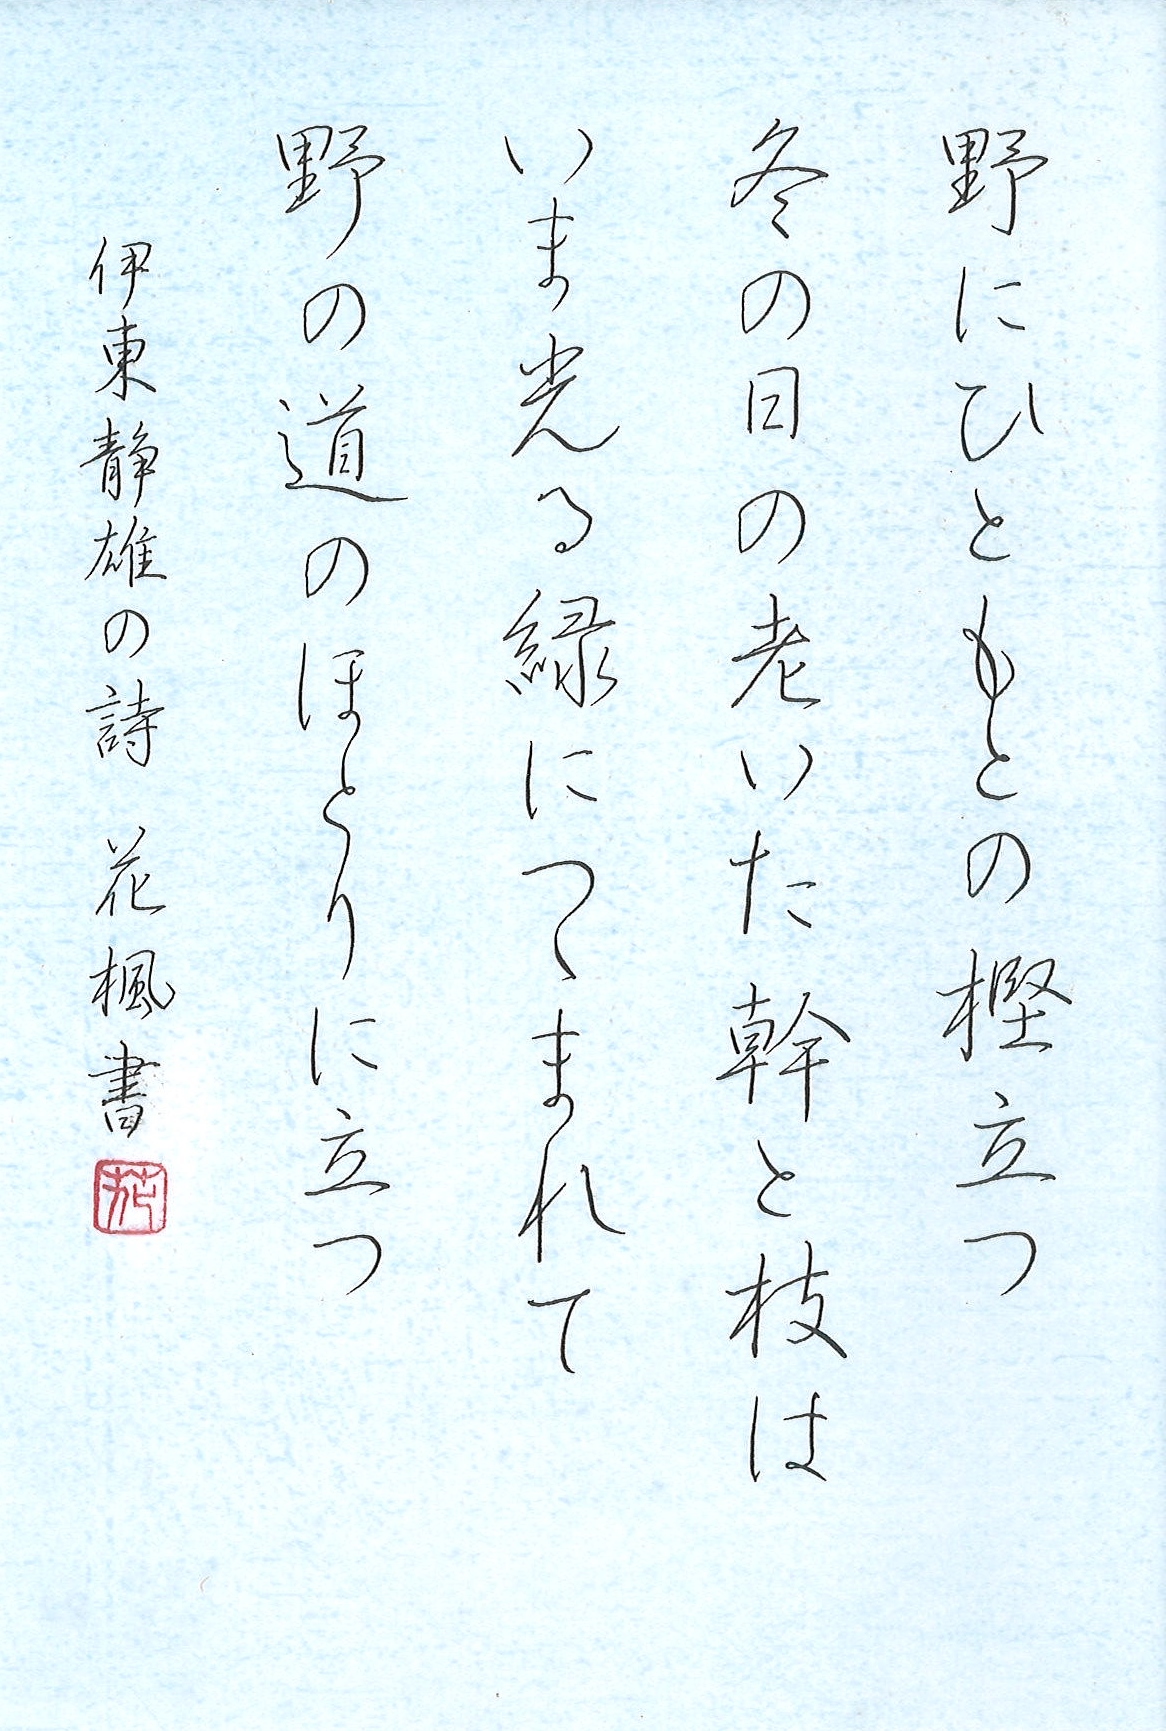 野にひともとの樫立つ
冬の日の老いた幹と枝は
いま光る緑につゝまれて
野の道のほとりに立つ
伊東静雄の詩 花楓書